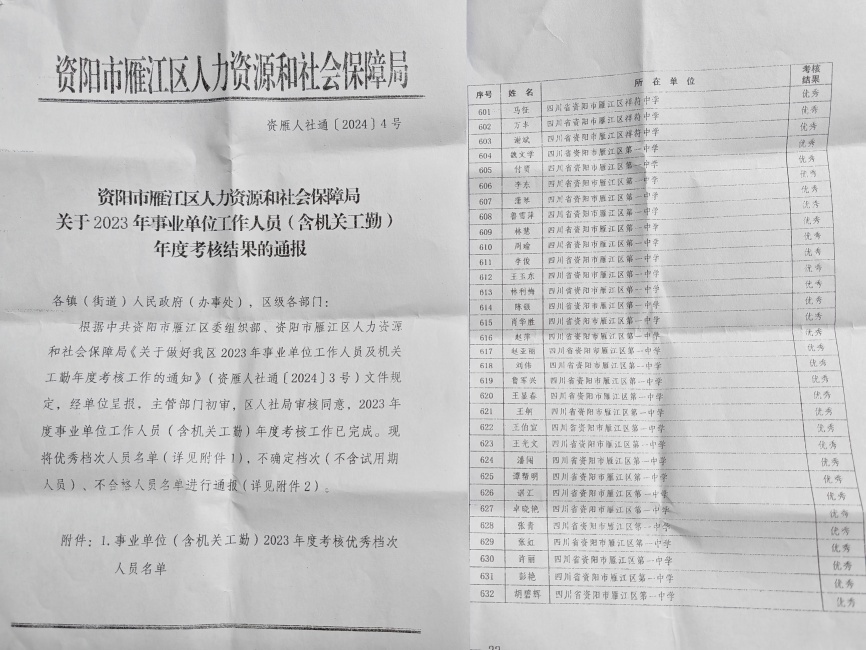 资阳市雁江区人力资源和社会保障局
资雁人社通〔2024〕4号
资阳市雁江区人力资源和社会保障局
关于2023年事业单位工作人员（含机关工勤）
年度考核结果的通报
各镇（街道）人民政府（办事处），区级各部门：
根据中共资阳市雁江区委组织部、资阳市雁江区人力资源
和社会保障局《关于做好我区2023年事业单位工作人员及机关
工勤年度考核工作的通知》（资雁人社通〔2024〕3号）文件规
定，经单位呈报，主管部门初审，区人社局审核同意，2023年
度事业单位工作人员（含机关工勤）年度考核工作已完成。现
将优秀档次人员名单（详见附件1），不确定档次（不含试用期
人员）、不合格人员名单进行通报（详见附件2）。
附件：1.事业单位（含机关工勤）2023年度考核优秀档次
人员名单
序号 姓名 所在单位 考核结果
601 四川省资阳市雁江区祥符中学 优秀
602 万丰 四川省资阳市雁江区祥符中学 优秀
603 谢斌 四川省资阳市雁江区祥符中学 优秀
604 魏文学 四川省资阳市雁江区第一中学 优秀
605 付勇 四川省资阳市雁江区第一中学 优秀
606 李东 四川省资阳市雁江区第一中学 优秀
607 四川省资阳市雁江区第一中学 优秀
608 曾雪萍 四川省资阳市雁江区第一中学 优秀
609 林慧 四川省资阳市雁江区第一中学 优秀
610 周瑜 四川省资阳市雁江区第一中学 优秀
611 李俊 四川省资阳市雁江区第一中学 优秀
612 王玉东 四川省资阳市雁江区第一中学 优秀
613 林利梅 四川省资阳市雁江区第一中学 优秀
614 陈强 四川省资阳市雁江区第一中学 优秀
615 肖华胜 四川省资阳市雁江区第一中学 优秀
616 赵萍 四川省资阳市雁江区第一中学 优秀
617 赵亚丽 四川省资阳市雁江区第一中学 优秀
618 刘伟 四川省资阳市雁江区第一中学 优秀
619 曾军兴 四川省资阳市雁江区第一中学 优秀
620 王显春 四川省资阳市雁江区第一中学 优秀
621 王钊 四川省资阳市雁江区第一中学 优秀
622 王伯宣 四川省资阳市雁江区第一中学 优秀
623 王光文 四川省资阳市雁江区第一中学 优秀
624 潘闯 四川省资阳市雁江区第一中学 优秀
625 谭精明 四川省资阳市雁江区第一中学 优秀
626 谌汇 四川省资阳市雁江区第一中学 优秀
627 卓晓艳 四川省资阳市雁江区第一中学 优秀
628 张青 四川省资阳市雁江区第一中学 优秀
629 张红 四川省资阳市雁江区第一中学 优秀
630 许丽 四川省资阳市雁江区第一中学 优秀
631 彭艳 四川省资阳市雁江区第一中学 优秀
632 胡碧辉 四川省资阳市雁江区第一中学 优秀